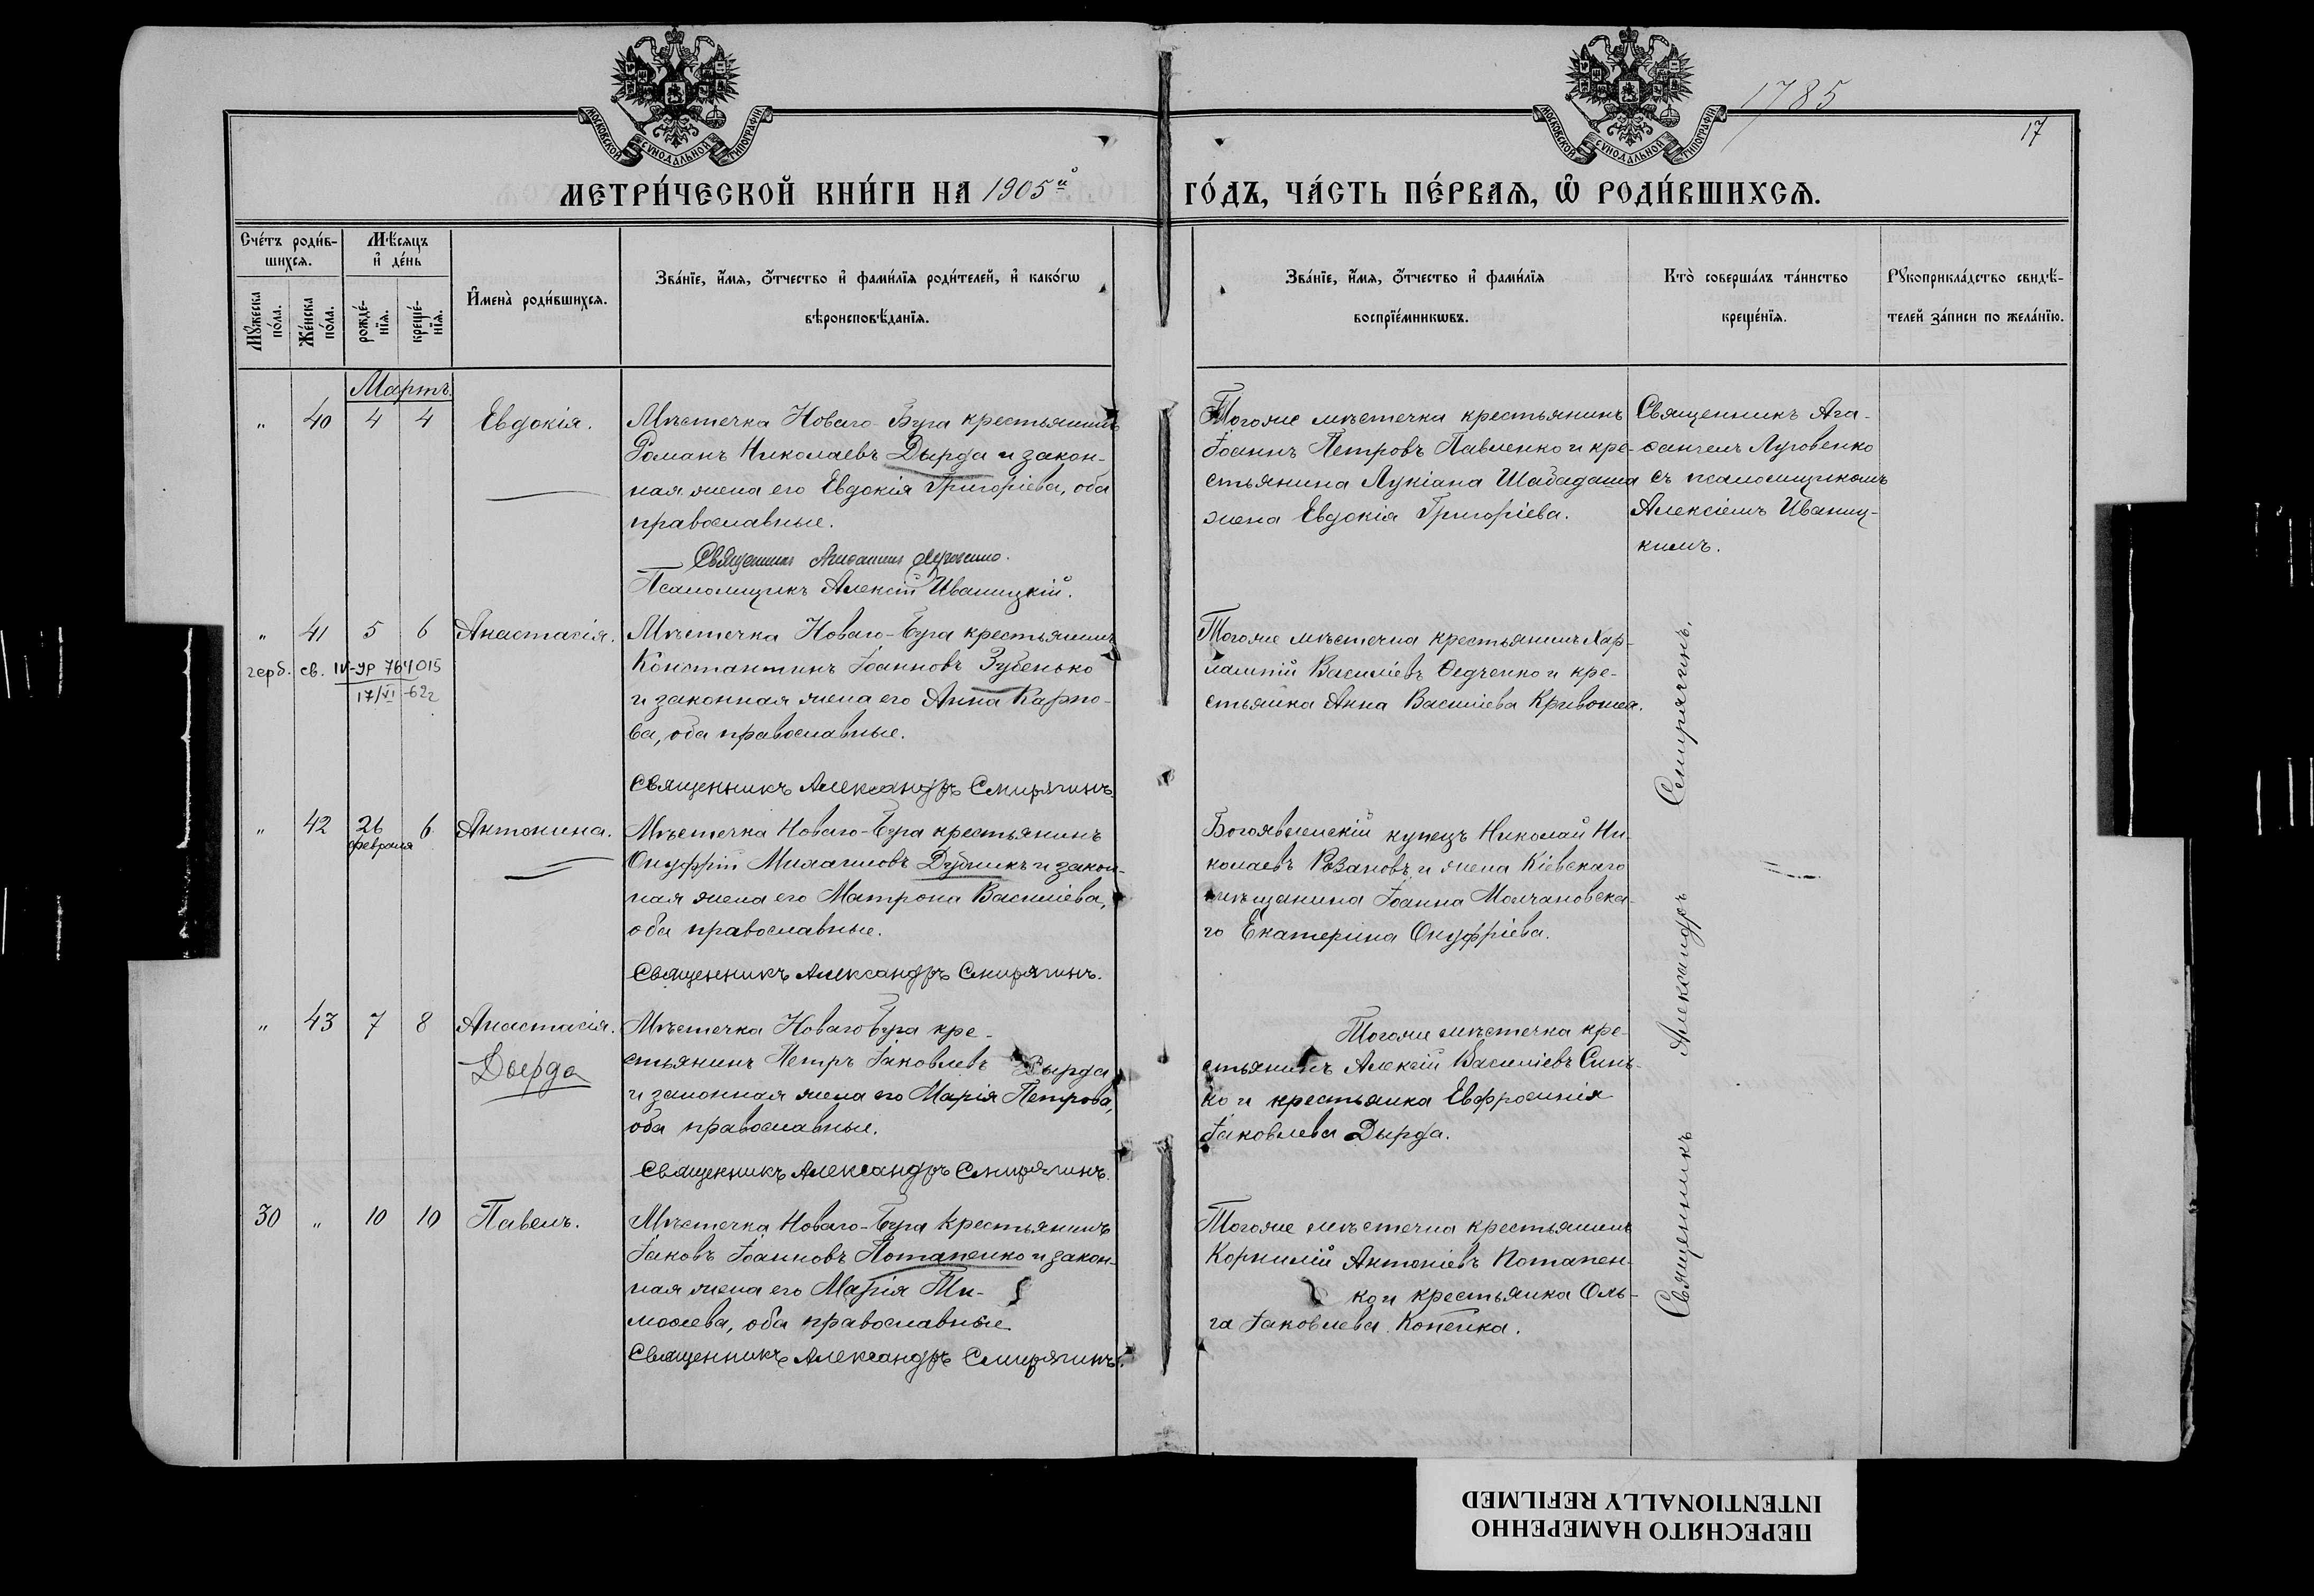 МОСКОВСКОЙ СѴНОДАЛЬНОЙ ТИПОГРАФІИ
МОСКОВСКОЙ СѴНОДАЛЬНОЙ ТИПОГРАФІИ
1785
17
МЕТРИ́ЧЕСКОЙ КНИ́ГИ НА 1905й ГО́ДЪ, ЧА́СТЬ ПЕ́РВАѦ, Ѡ РОДИ́ВШИХСѦ.
Сче́тъ роди́в-
шихсѧ.
Мꙋ́жеска по́ла.
Же́нска по́ла.
Мѣ́сѧцъ
и҆ де́нь
рожде́-
нїѧ.
креще́-
нїѧ.
И҆мена̀ роди́вшихсѧ.
Зва́нїе, и҆́мѧ, ѻ҆́тчество и҆ фами́лїѧ роди́телей, и҆ како́гѡ
вѣроисповѣ́данїѧ.
Зва́нїе, и҆́мѧ, ѻ҆́тчество и҆ фами́лїѧ
воспрїе́мникѡвъ.
Кто̀ соверша́лъ та́инство
креще́нїѧ.
Рꙋкоприкла́дство свидѣ́-
телей за́писи по жела́нїю.
Мартъ.
„ 40 4 4 Евдокія.
Мѣстечка Новаго-Буга крестьянинъ
Романъ Николаевъ Дырда и закон-
ная жена его Евдокія Григоріева, оба
православные.
Священникъ Агаѳангелъ Луговенко.
Псаломщикъ Алексій Иваницкій.
Тогоже мѣстечка крестьянинъ
Іоаннъ Петровъ Павленко и кре-
стьянина Лукіана Шабадаша
жена Евдокія Григоріева.
Священникъ Ага-
ѳангелъ Луговенко
съ псаломщикомъ
Алексіемъ Иваниц-
кимъ.
„ 41 5 6 Анастасія.
герб. св. IV-УР 764015
17/VI-62г
Мѣстечка Новаго-Буга крестьянинъ
Константинъ Іоанновъ Зубенько
и законная жена его Анна Карпо-
ва, оба православные.
Священникъ Александръ Смирягинъ.
Тогоже мѣстечка крестьянинъ Хар-
лампій Василіевъ Ѳедченко и кре-
стьянка Анна Василіева Кривошея.
„ 42 26 февраля 6 Антонина.
Мѣстечка Новаго-Буга крестьянинъ
Онуфрій Дубникъ и закон-
ная жена его Матрона Василіева,
оба православные.
Священникъ Александръ Смирягинъ.
Богоявленскій купецъ Николай Ни-
колаевъ Розановъ и жена Кіевскаго
мѣщанина Іоанна Молчановска-
го Екатерина Онуфріева.
„ 43 7 8 Анастасія.
Дырда
Мѣстечка Новаго Буга кре-
стьянинъ Петръ Іаковлевъ Дырда
и законная жена его Марія Петрова,
оба православные.
Священникъ Александръ Смирягинъ.
Тогоже мѣстечка кре-
стьянинъ Алексій Василіевъ Синь-
ко и крестьянка Евфросинія
Іаковлева Дырда.
30 „ 10 10 Павелъ.
Мѣстечка Новаго-Буга крестьянинъ
Іаковъ Іоанновъ Потапенко и закон-
ная жена его Марія Ти-
моѳеева, оба православные
Священникъ Александръ Смирягинъ.
Тогоже мѣстечка крестьянинъ
Корнилій Антоніевъ Потапен-
ко и крестьянка Оль-
га Іаковлева Копейка.
Священникъ Александръ Смирягинъ.
ПЕРЕСНЯТО НАМЕРЕННО
INTENTIONALLY REFILMED